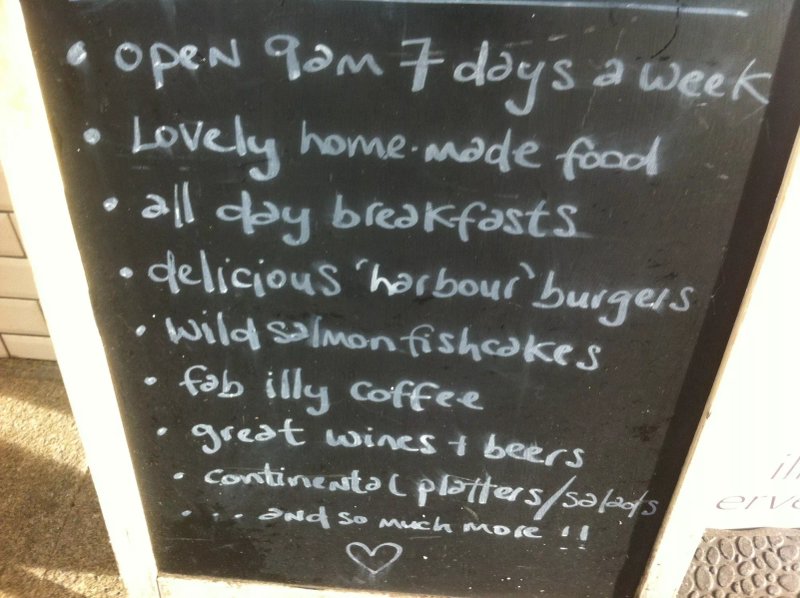 • open 9am 7 days a week
• Lovely home-made food
• all day breakfasts
• delicious 'harbour' burgers
• wild salmon fishcakes
• fab illy coffee
• great wines + beers
• continental platters/salads
• .. and so much more !!
♡